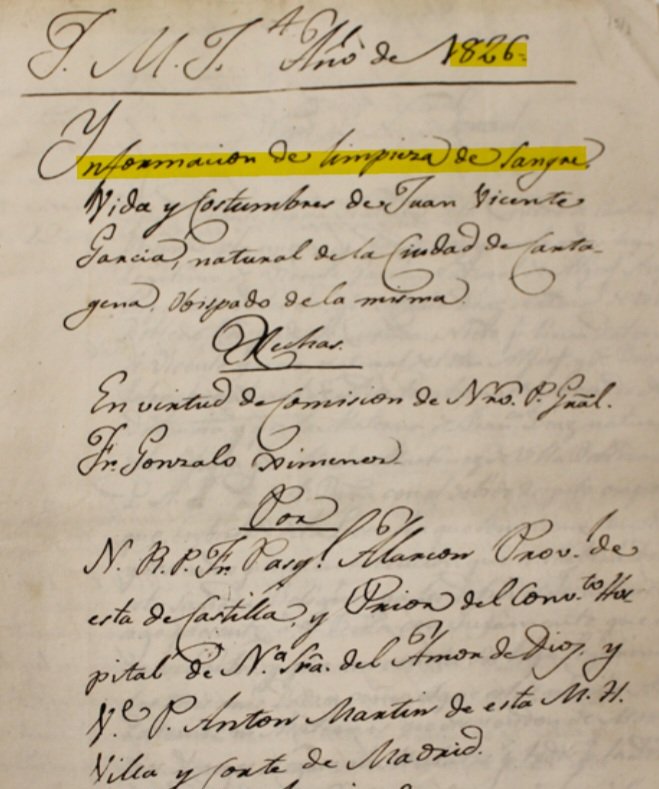 J. M. J. Año de 1826.
Ynformacion de limpieza de Sangre,
Vida y Costumbres de Juan Vicente
Garcia, natural de la Ciudad de Carta-
gena. Obispado de la misma.
Hechas.
En virtud de Comision de Nro. P. Gñal.
Fr. Gonzalo Ximenez.
Por
N. R. P. Fr. Pasql. Alarcon Provl. de
esta de Castilla, y Prior del Convto. Hos
pital de Na. Sra. del Amor de Dios, y
Ve. P. Anton Martin de esta M. H.
Villa y Corte de Madrid.